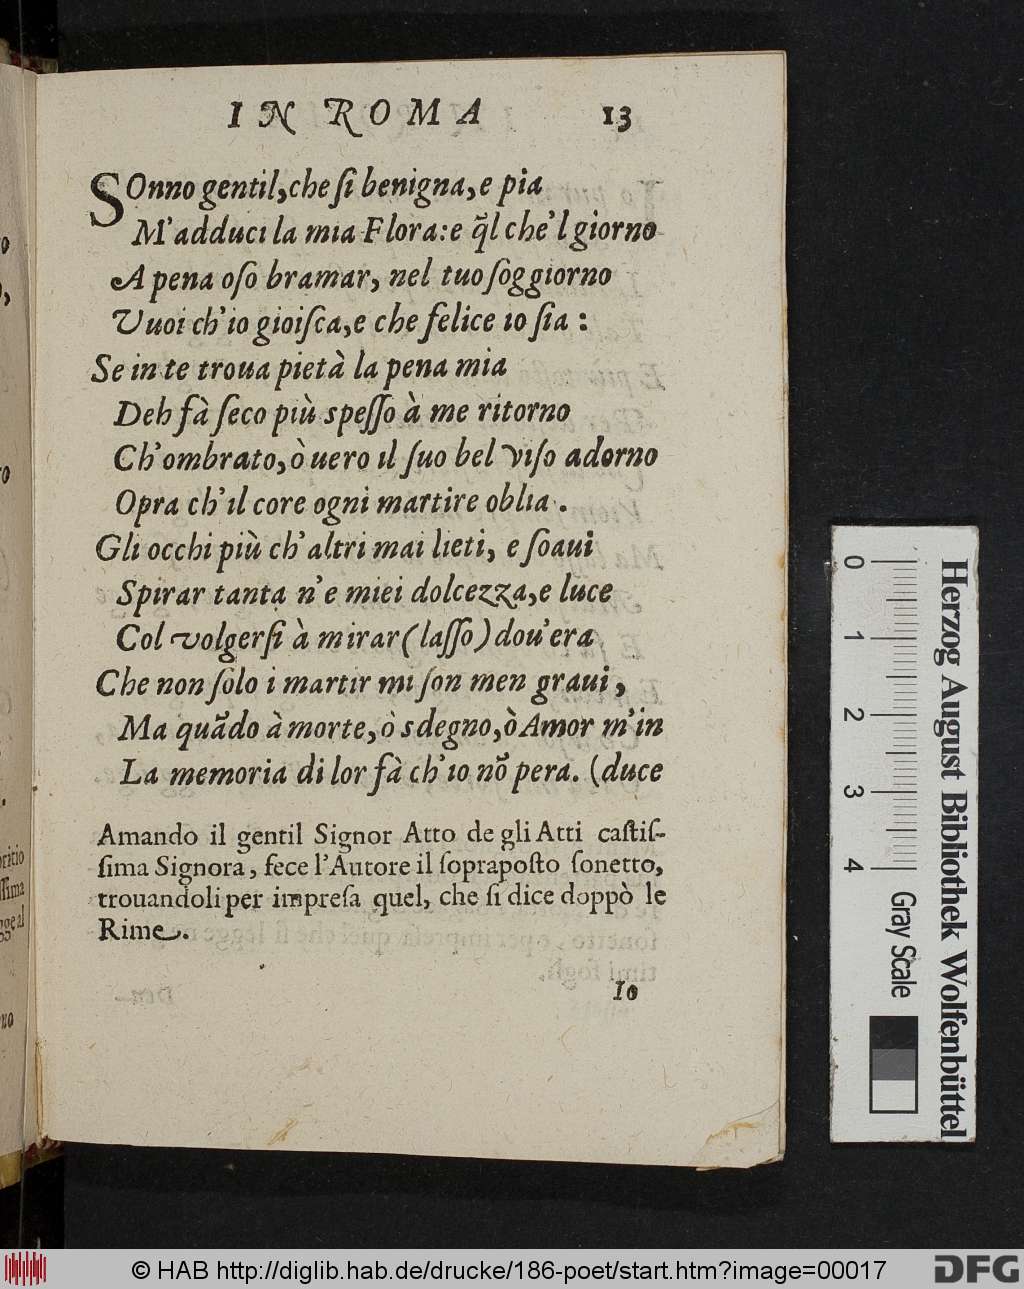 IN ROMA 13
SOnno gentil, che ſi benigna, e pia
M'adduci la mia Flora: e q̃l che'l giorno
A pena oſo bramar, nel tuo ſoggiorno
Vuoi ch'io gioiſca, e che felice io ſia :
Se in te troua pietà la pena mia
Deh fà ſeco più speſſo à me ritorno
Ch'ombrato, ò uero il ſuo bel viſo adorno
Opra ch'il core ogni martire oblia .
Gli occhi più ch'altri mai lieti, e ſoaui
Spirar tanta n'e miei dolcezza, e luce
Col volgerſi à mirar (laſſo) dou'era
Che non ſolo i martir mi ſon men graui,
Ma quãdo à morte, ò sdegno, ò Amor m'in
La memoria di lor fà ch'io nõ pera. (duce
Amando il gentil Signor Atto de gli Atti caſtiſ-
ſima Signora, fece l'Autore il ſoprapoſto ſonetto,
trouandoli per impreſa quel, che ſi dice doppò le
Rime.
Io
0 1 2 3 4
Gray Scale
Herzog August Bibliothek Wolfenbüttel
© HAB http://diglib.hab.de/drucke/186-poet/start.htm?image=00017
DFG